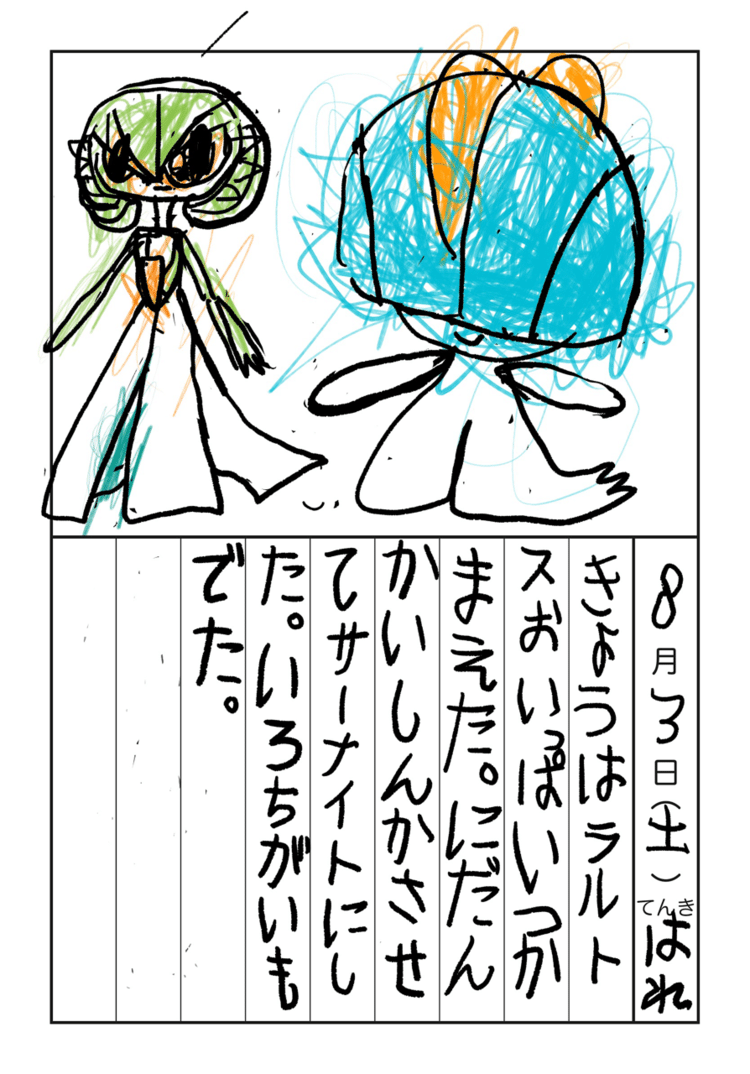 8月3日(土)てんきはれ
きょうはラルト
スおいっぱいつか
まえた。にだん
かいしんかさせ
てサーナイトにし
た。いろちがいも
でた。